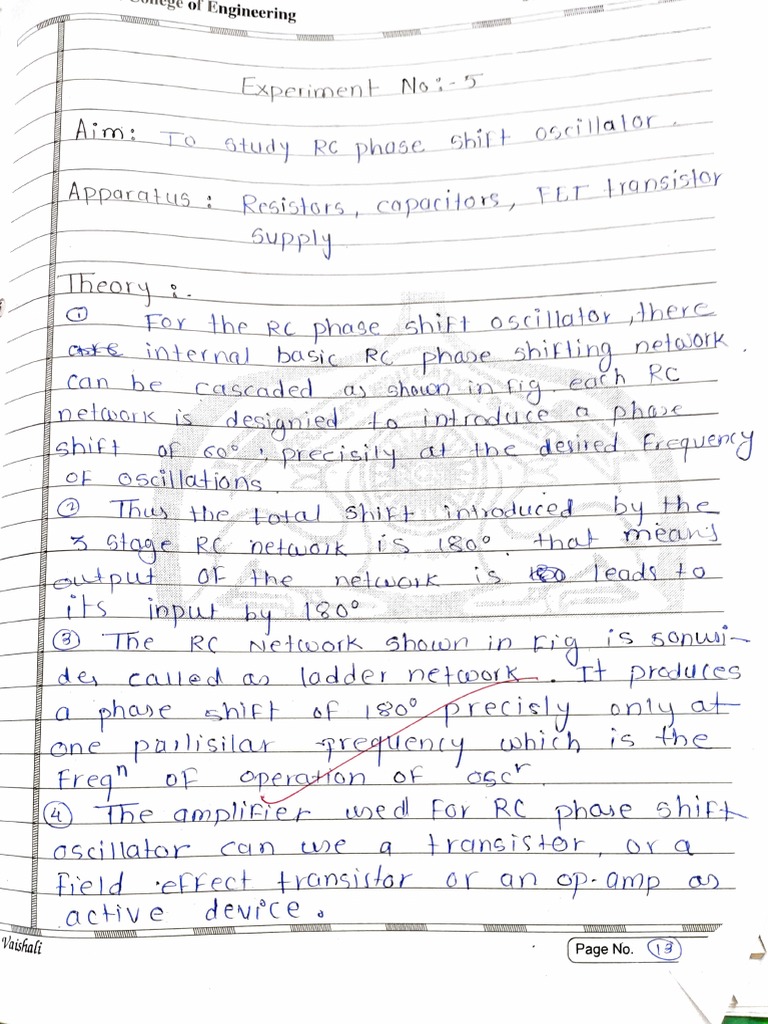 College of Engineering
Experiment No:- 5
Aim: To study RC phase shift oscillator.
Apparatus: Resistors, capacitors, FET transistor
supply
Theory :-
① For the RC phase shift oscillator, there
internal basic RC phase shifting network.
can be cascaded as shown in fig. each RC
network is designied to introduce a phase
shift of 60°, precisily at the desired frequency
of oscillations
② Thus the total shift introduced by the
3 stage RC network is 180°. that means
output of the network is leads to
its input by 180°
③ The RC Network shown in Fig is sonusi-
der called as ladder network. It produces
a phase shift of 180° precisly only at
one pailisilar frequency which is the
Freqⁿ of operation of oscʳ
④ The amplifier used for RC phase shift
oscillator can use a transistor, or a
field effect transistor or an op-amp as
active device.
Vaishali
Page No. 13